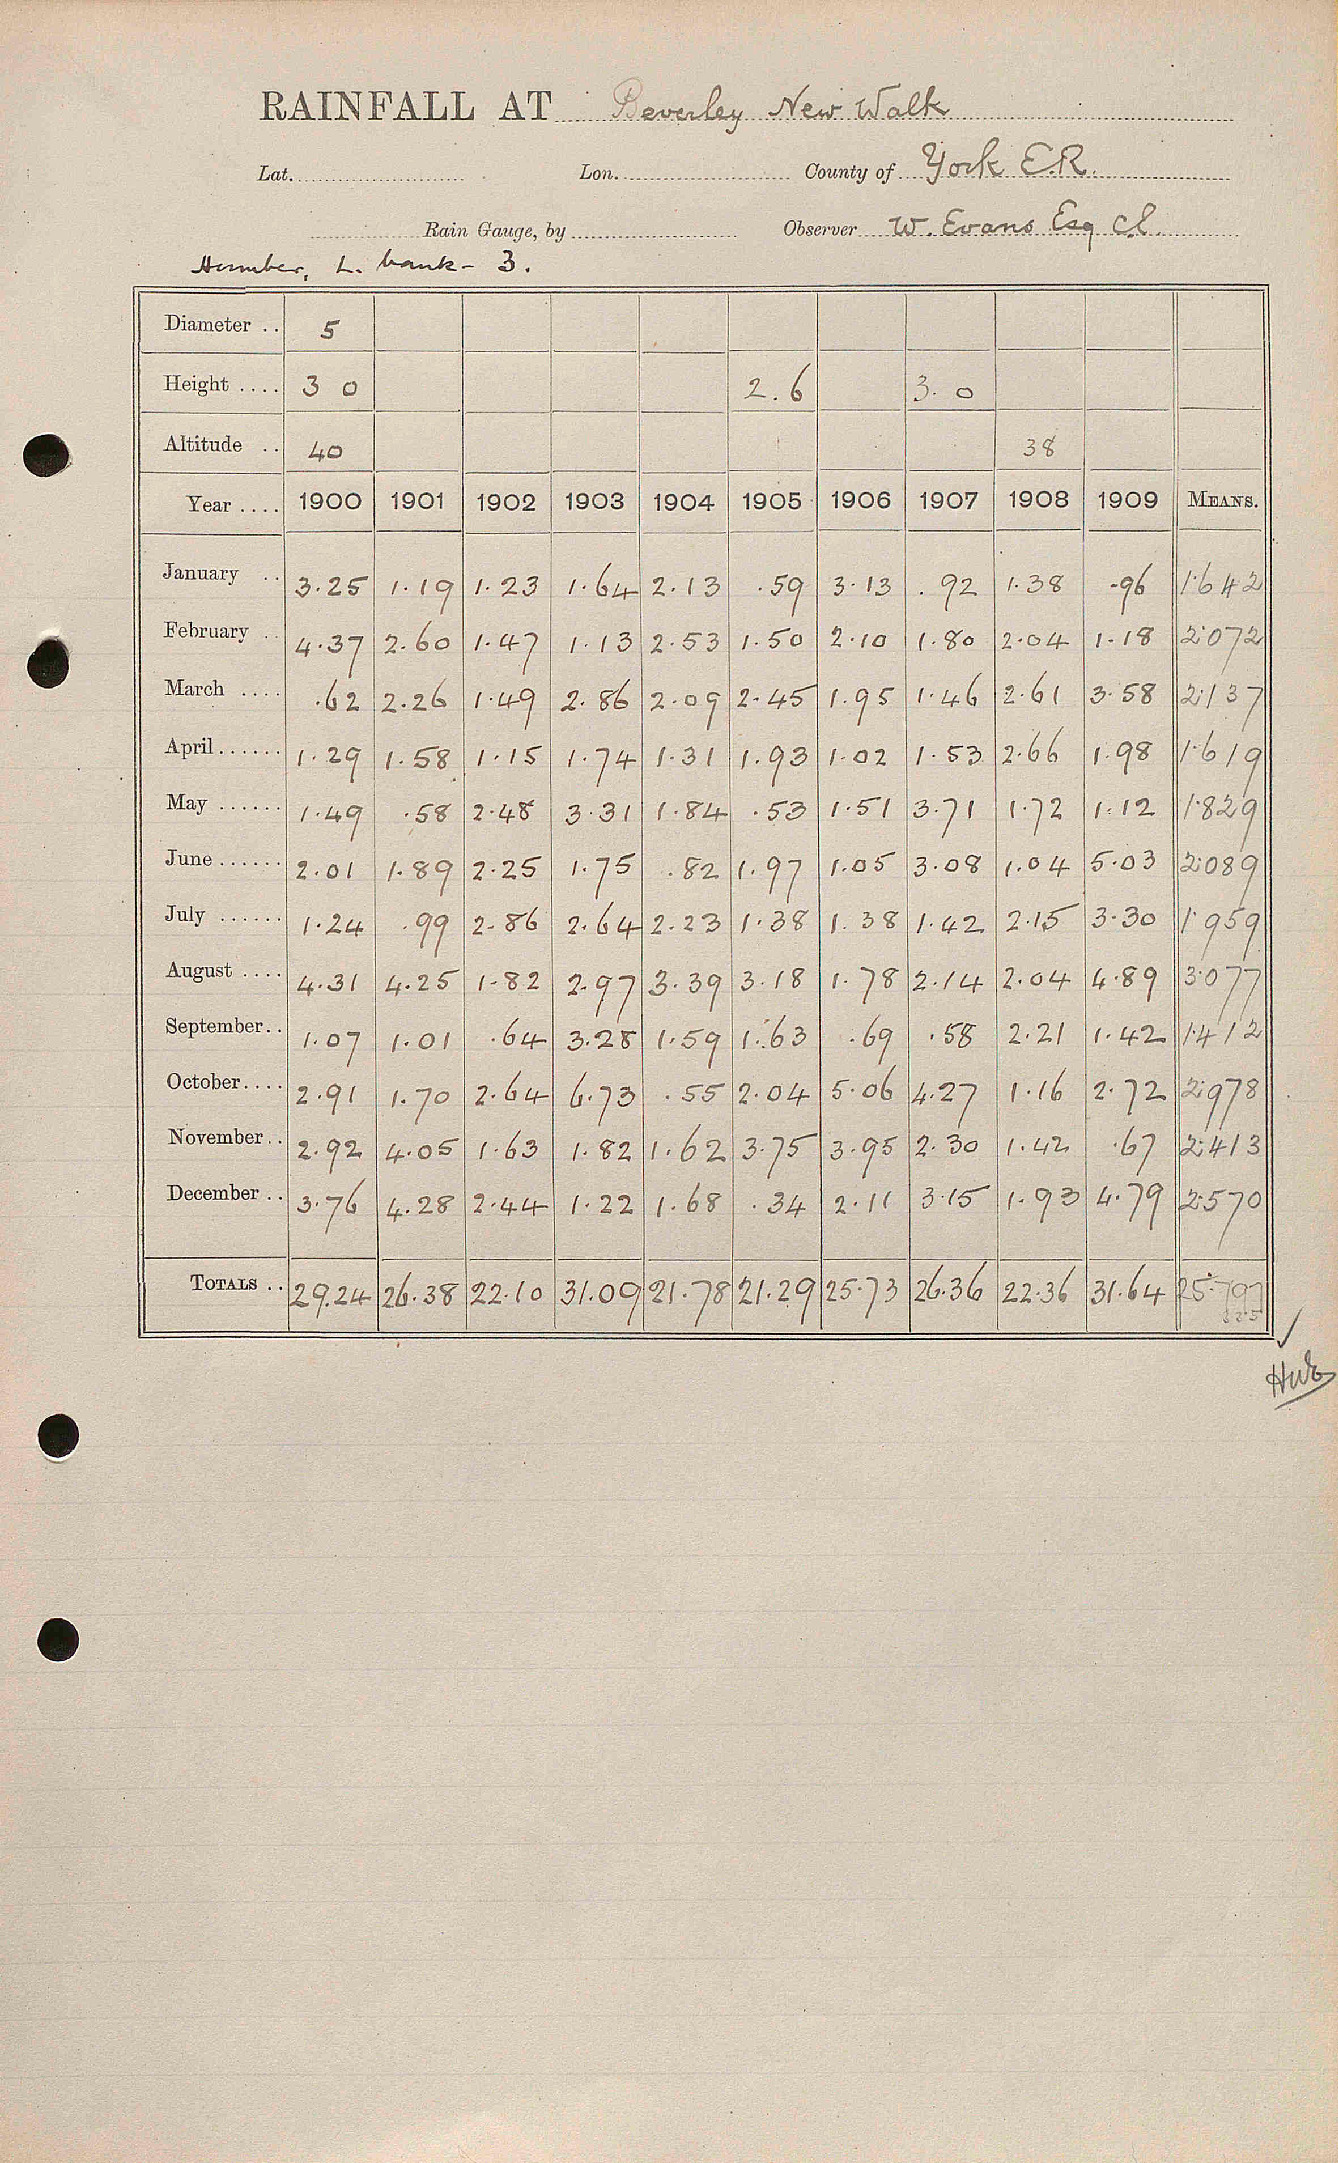 RAINFALL AT Beverley New Walk
Lat. Lon. County of York E.R.
Rain Gauge, by Observer W. Evans Esq C.E.
Humber, L. bank - 3.
Diameter .. 5
Height .... 3 0 2.6 3.0
Altitude .. 40 38
Year .... 1900 1901 1902 1903 1904 1905 1906 1907 1908 1909 MEANS.
January .. 3.25 1.19 1.23 1.64 2.13 .59 3.13 .92 1.38 .96 1.642
February .. 4.37 2.60 1.47 1.13 2.53 1.50 2.10 1.80 2.04 1.18 2.072
March .... .62 2.26 1.49 2.86 2.09 2.45 1.95 1.46 2.61 3.58 2.137
April ...... 1.29 1.58 1.15 1.74 1.31 1.93 1.02 1.53 2.66 1.98 1.619
May ...... 1.49 .58 2.48 3.31 1.84 .53 1.51 3.71 1.72 1.12 1.829
June ...... 2.01 1.89 2.25 1.75 .82 1.97 1.05 3.08 1.04 5.03 2.089
July ...... 1.24 .99 2.86 2.64 2.23 1.38 1.38 1.42 2.15 3.30 1.959
August .... 4.31 4.25 1.82 2.97 3.39 3.18 1.78 2.14 2.04 4.89 3.077
September .. 1.07 1.01 .64 3.28 1.59 1.63 .69 .58 2.21 1.42 1.412
October .... 2.91 1.70 2.64 6.73 .55 2.04 5.06 4.27 1.16 2.72 2.978
November .. 2.92 4.05 1.63 1.82 1.62 3.75 3.95 2.30 1.42 .67 2.413
December .. 3.76 4.28 2.44 1.22 1.68 .34 2.11 3.15 1.93 4.79 2.570
TOTALS .. 29.24 26.38 22.10 31.09 21.78 21.29 25.73 26.36 22.36 31.64 25.797